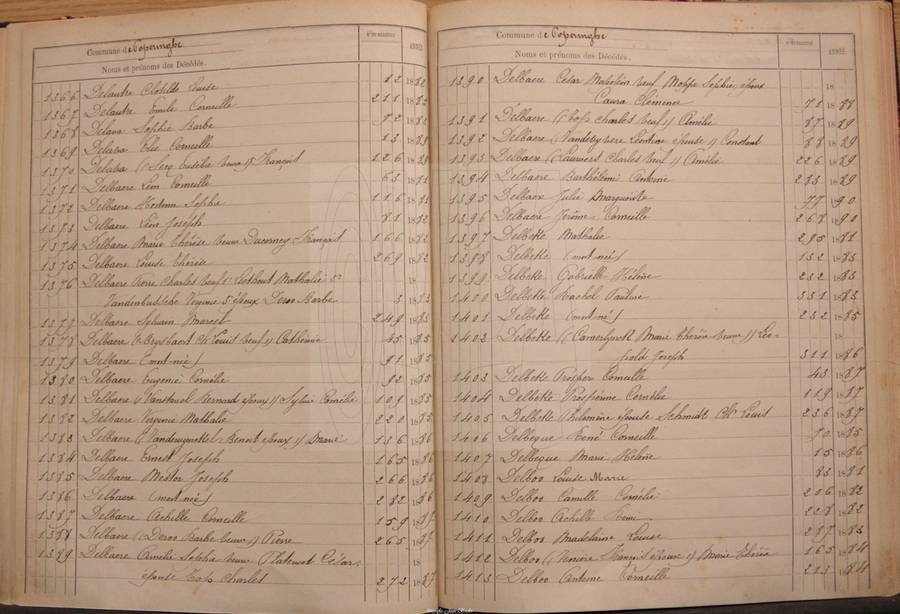 Commune de Poperinghe
Noms et prénoms des Décédés.
ANNÉE.
1366 Delautre Clotilde Louise 12 1882
1367 Delautre Emile Corneille 211 1882
1368 Delava Sophie Barbe 72 1882
1369 Delava Elie Corneille 13 1889
1370 Delava François 126 1889
1371 Delbaere Léon Corneille 63 1881
1372 Delbaere Hortense Sophie 116 1881
1373 Delbaere Léon Joseph 81 1882
1374 Delbaere Marie Thérèse veuve François 166 1882
1375 Delbaere Louise Thérèse 269 1882
1376 Delbaere Charles veuf Mathalie 18
Vandenbussche Virginie époux Deroo Barbe 3 1883
1377 Delbaere Sylvain Marcel 249 1883
1378 Delbaere Ch. Louis veuf // Catherine 45 1885
1379 Delbaere (mort-né) 91 1885
1380 Delbaere Eugénie Cornélie 93 1885
1381 Delbaere Bernard époux // Sylvie Cornélie 109 1885
1382 Delbaere Virginie Nathalie 220 1885
1383 Delbaere Benoit époux // Marie 136 1886
1384 Delbaere Ernest Joseph 165 1886
1385 Delbaere Nestor Joseph 266 1886
1386 Delbaere (mort-né) 282 1886
1387 Delbaere Achille Corneille 159 1887
1388 Delbaere (Deroo Barbe veuve // Pierre 265 1887
1389 Delbaere Amélie Sophie veuve César 18
épouse Top Charles 272 1887
Commune de Poperinghe
Noms et prénoms des Décédés.
ANNÉE.
1390 Delbaere César Napoléon veuf Sophie, époux 18
Clémence 71 1888
1391 Delbaere (Top Charles veuf // Amélie 87 1889
1392 Delbaere Léontine épouse // Constant 88 1889
1393 Delbaere (Lauwers Charles veuf // Amélie 226 1889
1394 Delbaere Barthélemi Antoine 283 1889
1395 Delbaere Julie Marguerite 77 1890
1396 Delbaere Jérôme Corneille 268 1890
1397 Delbeke Nathalie 295 1881
1398 Delbeke (mort-né) 132 1883
1399 Delbeke Gabrielle Hélène 232 1883
1400 Delbeke Rachel Pauline 331 1883
1401 Delbeke (mort-né) 232 1885
1402 Delbeke (Camerlynck Marie Thérèse veuve // Léo- 18
pold Joseph 311 1886
1403 Delbeke Prosper Corneille 43 1887
1404 Delbeke Cornélie 119 1887
1405 Delbeke Philomène épouse Schmidt Ch. Louis 236 1887
1406 Delbeque René Corneille 70 1885
1407 Delbeque Marie Hélène 15 1886
1408 Delboo Louise Marie 83 1881
1409 Delboo Camille Cornélie 206 1882
1410 Delboo Achille Remi 228 1882
1411 Delboo Madelaine Louise 287 1883
1412 Delboo François époux // Marie Thérèse 165 1884
1413 Delboo Antoine Corneille 213 1884